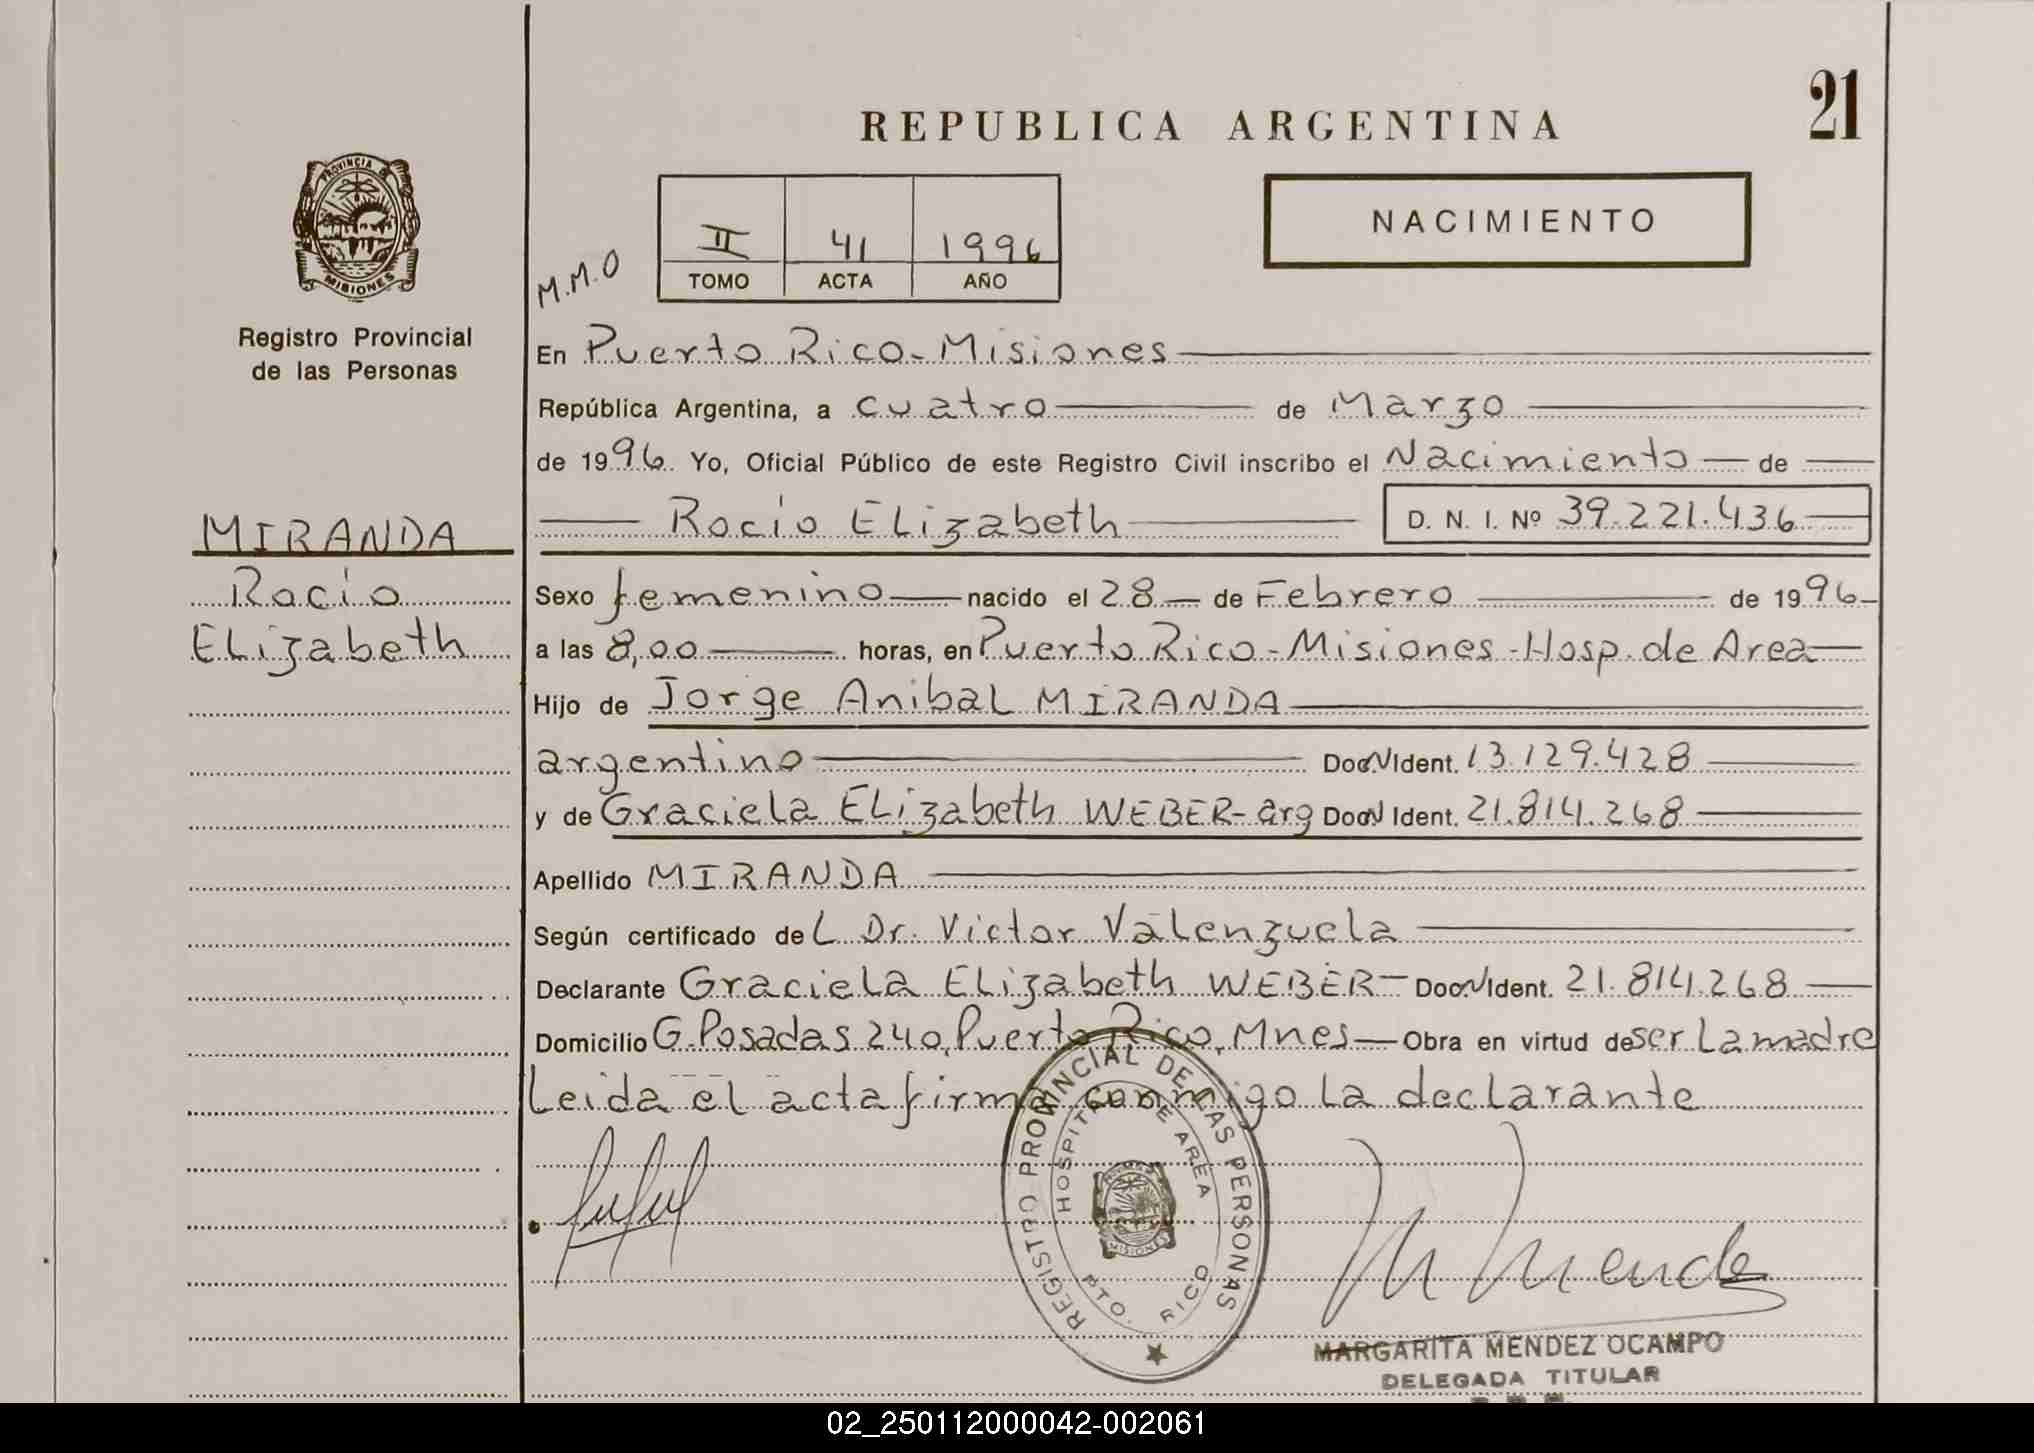 21
REPUBLICA ARGENTINA
NACIMIENTO
PROVINCIA DE
MISIONES
Registro Provincial
de las Personas
M.M.O
II 41 1996
TOMO ACTA AÑO
En Puerto Rico-Misiones
República Argentina, a cuatro de Marzo
de 1996. Yo, Oficial Público de este Registro Civil inscribo el Nacimiento de
Rocío Elizabeth D. N. I. Nº 39.221.436
MIRANDA
Rocío
Elizabeth
Sexo femenino nacido el 28 de Febrero de 1996
a las 8,00 horas, en Puerto Rico-Misiones-Hosp. de Area
Hijo de Jorge Anibal MIRANDA
argentino Doc.N Ident. 13.129.428
y de Graciela Elizabeth WEBER-arg Doc.N Ident. 21.814.268
Apellido MIRANDA
Según certificado del Dr. Victor Valenzuela
Declarante Graciela Elizabeth WEBER- Doc.N Ident. 21.814.268
Domicilio G. Posadas 240, Puerto Rico, Mnes- Obra en virtud de ser La madre
Leida el acta firma conmigo La declarante
REGISTRO PROVINCIAL DE LAS PERSONAS
HOSPITAL DE AREA
MISIONES
PTO. RICO
M Mendez
MARGARITA MENDEZ OCAMPO
DELEGADA TITULAR
02_250112000042-002061